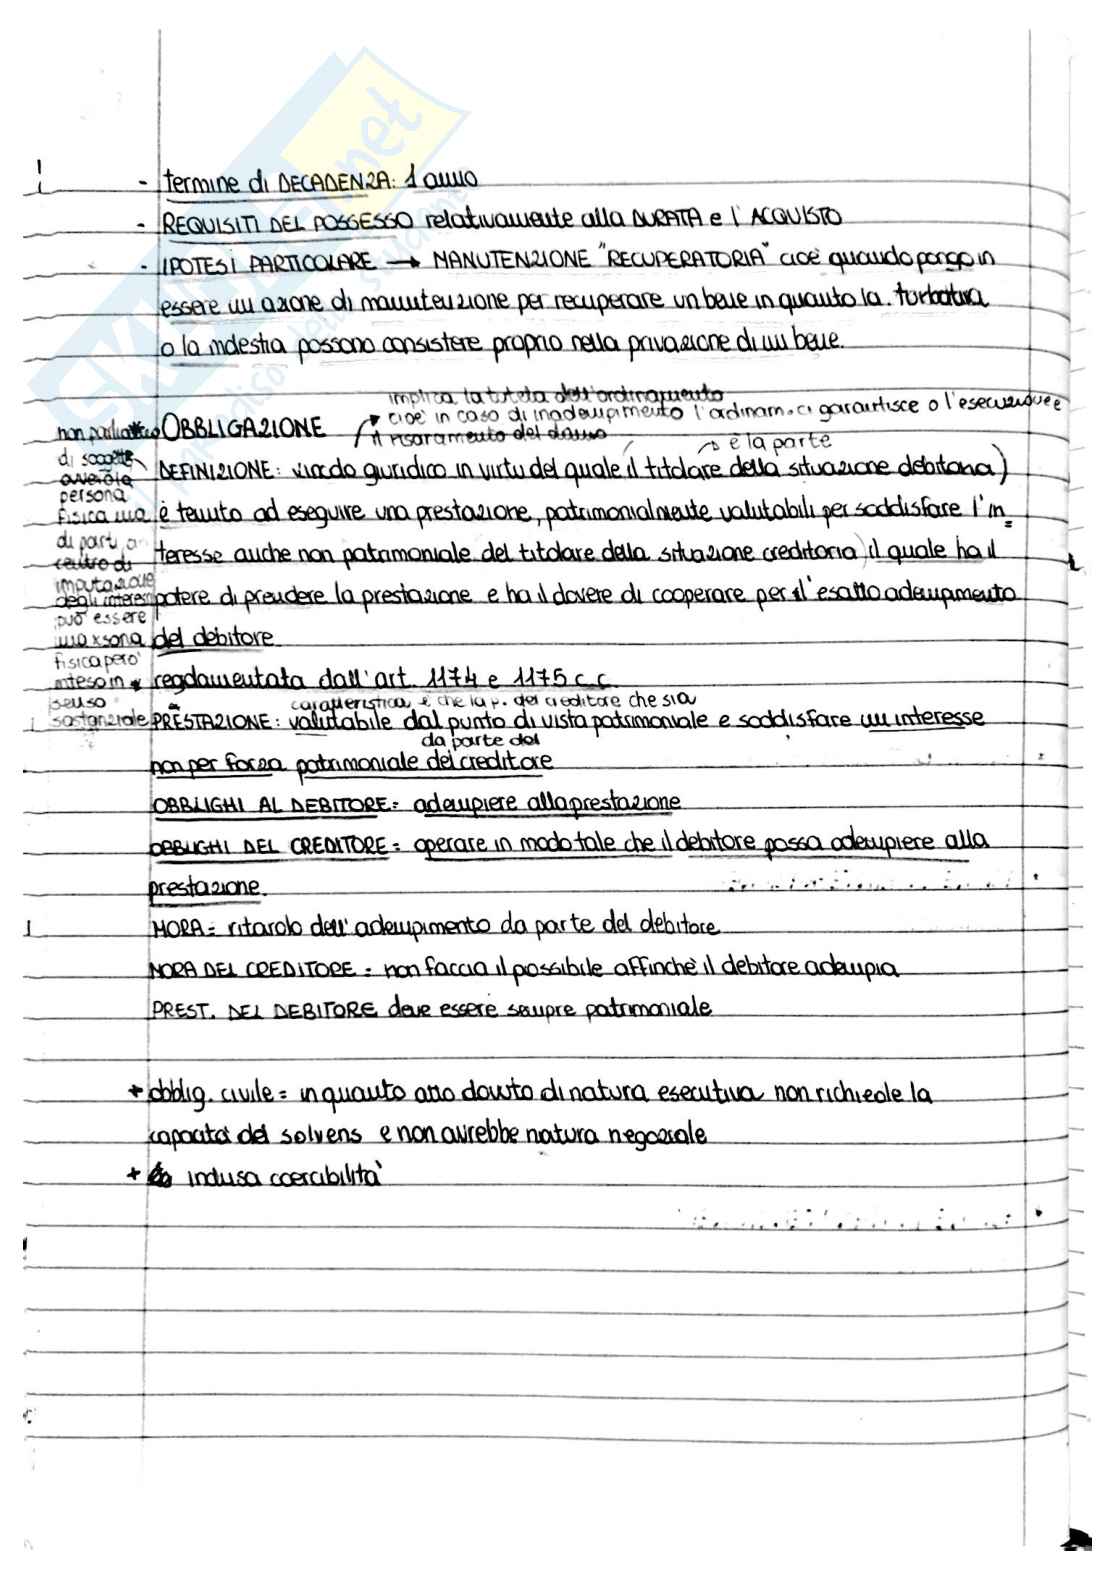 - termine di DECADENZA: 1 anno
- REQUISITI DEL POSSESSO relativamente alla DURATA e l'ACQUISTO
- IPOTESI PARTICOLARE → MANUTENZIONE "RECUPERATORIA" cioè quando pongo in
essere un azione di manutenzione per recuperare un bene in quanto la turbativa
o la molestia possono consistere proprio nella privazione di un bene.
implica la tutela dell'ordinamento
cioè in caso di inadempimento l'ordinam. ci garantisce o l'esecuzione e
il risarcimento del danno
OBBLIGAZIONE
è la parte
DEFINIZIONE: vincolo giuridico in virtù del quale il titolare della situazione debitoria)
è tenuto ad eseguire una prestazione, patrimonialmente valutabili per soddisfare l'in=
teresse anche non patrimoniale del titolare della situazione creditoria) il quale ha il
potere di prendere la prestazione e ha il dovere di cooperare per il esatto adempimento
del debitore
regolamentata dall'art. 1174 e 1175 c.c.
non parliamo
di soggetto
persona
fisica ma
di parti
centro di
imputazione
degli interessi
può essere
una xsona
fisica però
inteso in
senso
sostanziale
caratteristica è che la p. del creditore che sia
PRESTAZIONE: valutabile dal punto di vista patrimoniale e soddisfare un interesse
da parte del
non per forza patrimoniale del creditore
OBBLIGHI AL DEBITORE: adempiere alla prestazione
OBBLIGHI DEL CREDITORE: operare in modo tale che il debitore possa adempiere alla
prestazione.
MORA = ritardo dell'adempimento da parte del debitore
MORA DEL CREDITORE = non faccia il possibile affinchè il debitore adempia
PREST. DEL DEBITORE deve essere sempre patrimoniale
+ obblig. civile = in quanto atto dovuto di natura esecutiva non richiede la
capacità del solvens e non avrebbe natura negoziale
+ inclusa coercibilità